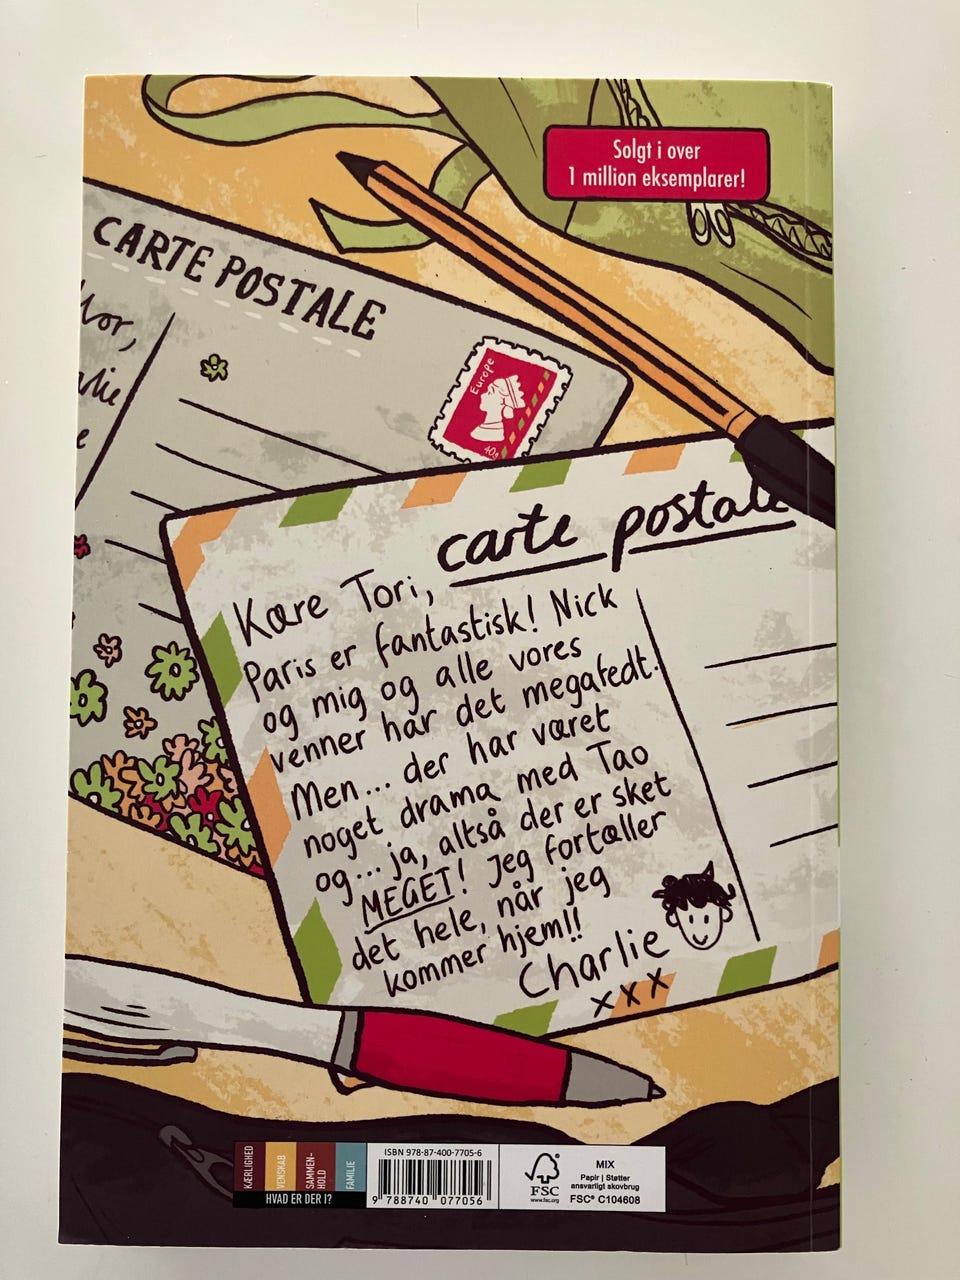 Solgt i over
1 million eksemplarer!
CARTE POSTALE
Europe
carte postale
Kære Tori,
Paris er fantastisk! Nick
og mig og alle vores
venner har det megafedt.
Men... der har været
noget drama med Tao
og... ja, altså der er sket
MEGET! Jeg fortæller
det hele, når jeg
kommer hjem!!
Charlie
xxx
KÆRLIGHED
VENSKAB
SAMMEN-
HOLD
FAMILIE
HVAD ER DER I?
ISBN 978-87-400-7705-6
9 788740 077056
FSC
www.fsc.org
MIX
Papir | Støtter
ansvarligt skovbrug
FSC® C104608